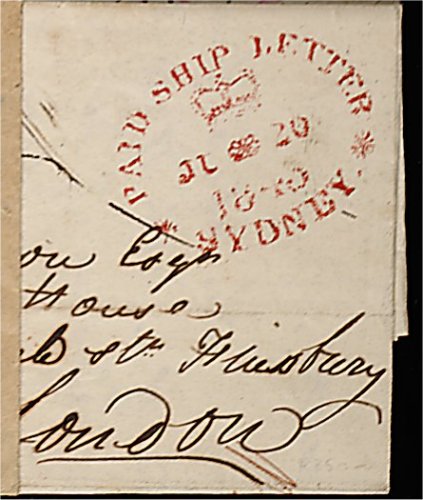 PAID SHIP LETTER
20
SYDNEY.
on Esqr
House
St. Finsbury
London